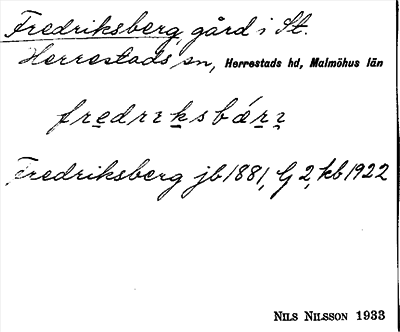 Fredriksberg, gård i St.
Herrestads sn, Herrestads hd, Malmöhus län
fredrıksbærı
Fredriksberg jb 1881, G 2, kb 1922
NILS NILSSON 1933